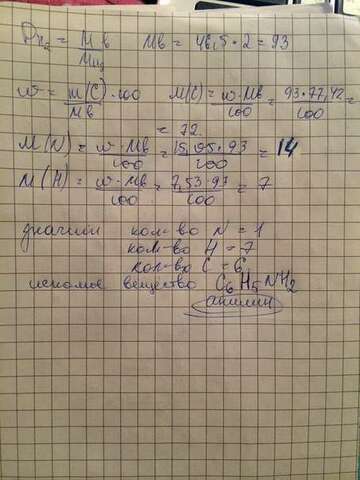 Dн₂ = Mв/Mн₂ Mв = 46,5·2 = 93
w = m(C)·100/Mв M(C) = w·Mв/100 = 93·77,42/100 =
= 72.
M(N) = w·Mв/100 = 15,05·93/100 = 14
M(H) = w·Mв/100 = 7,53·93/100 = 7
значит кол-во N = 1
кол-во H = 7
кол-во C = 6
искомое вещество C₆H₅NH₂
анилин